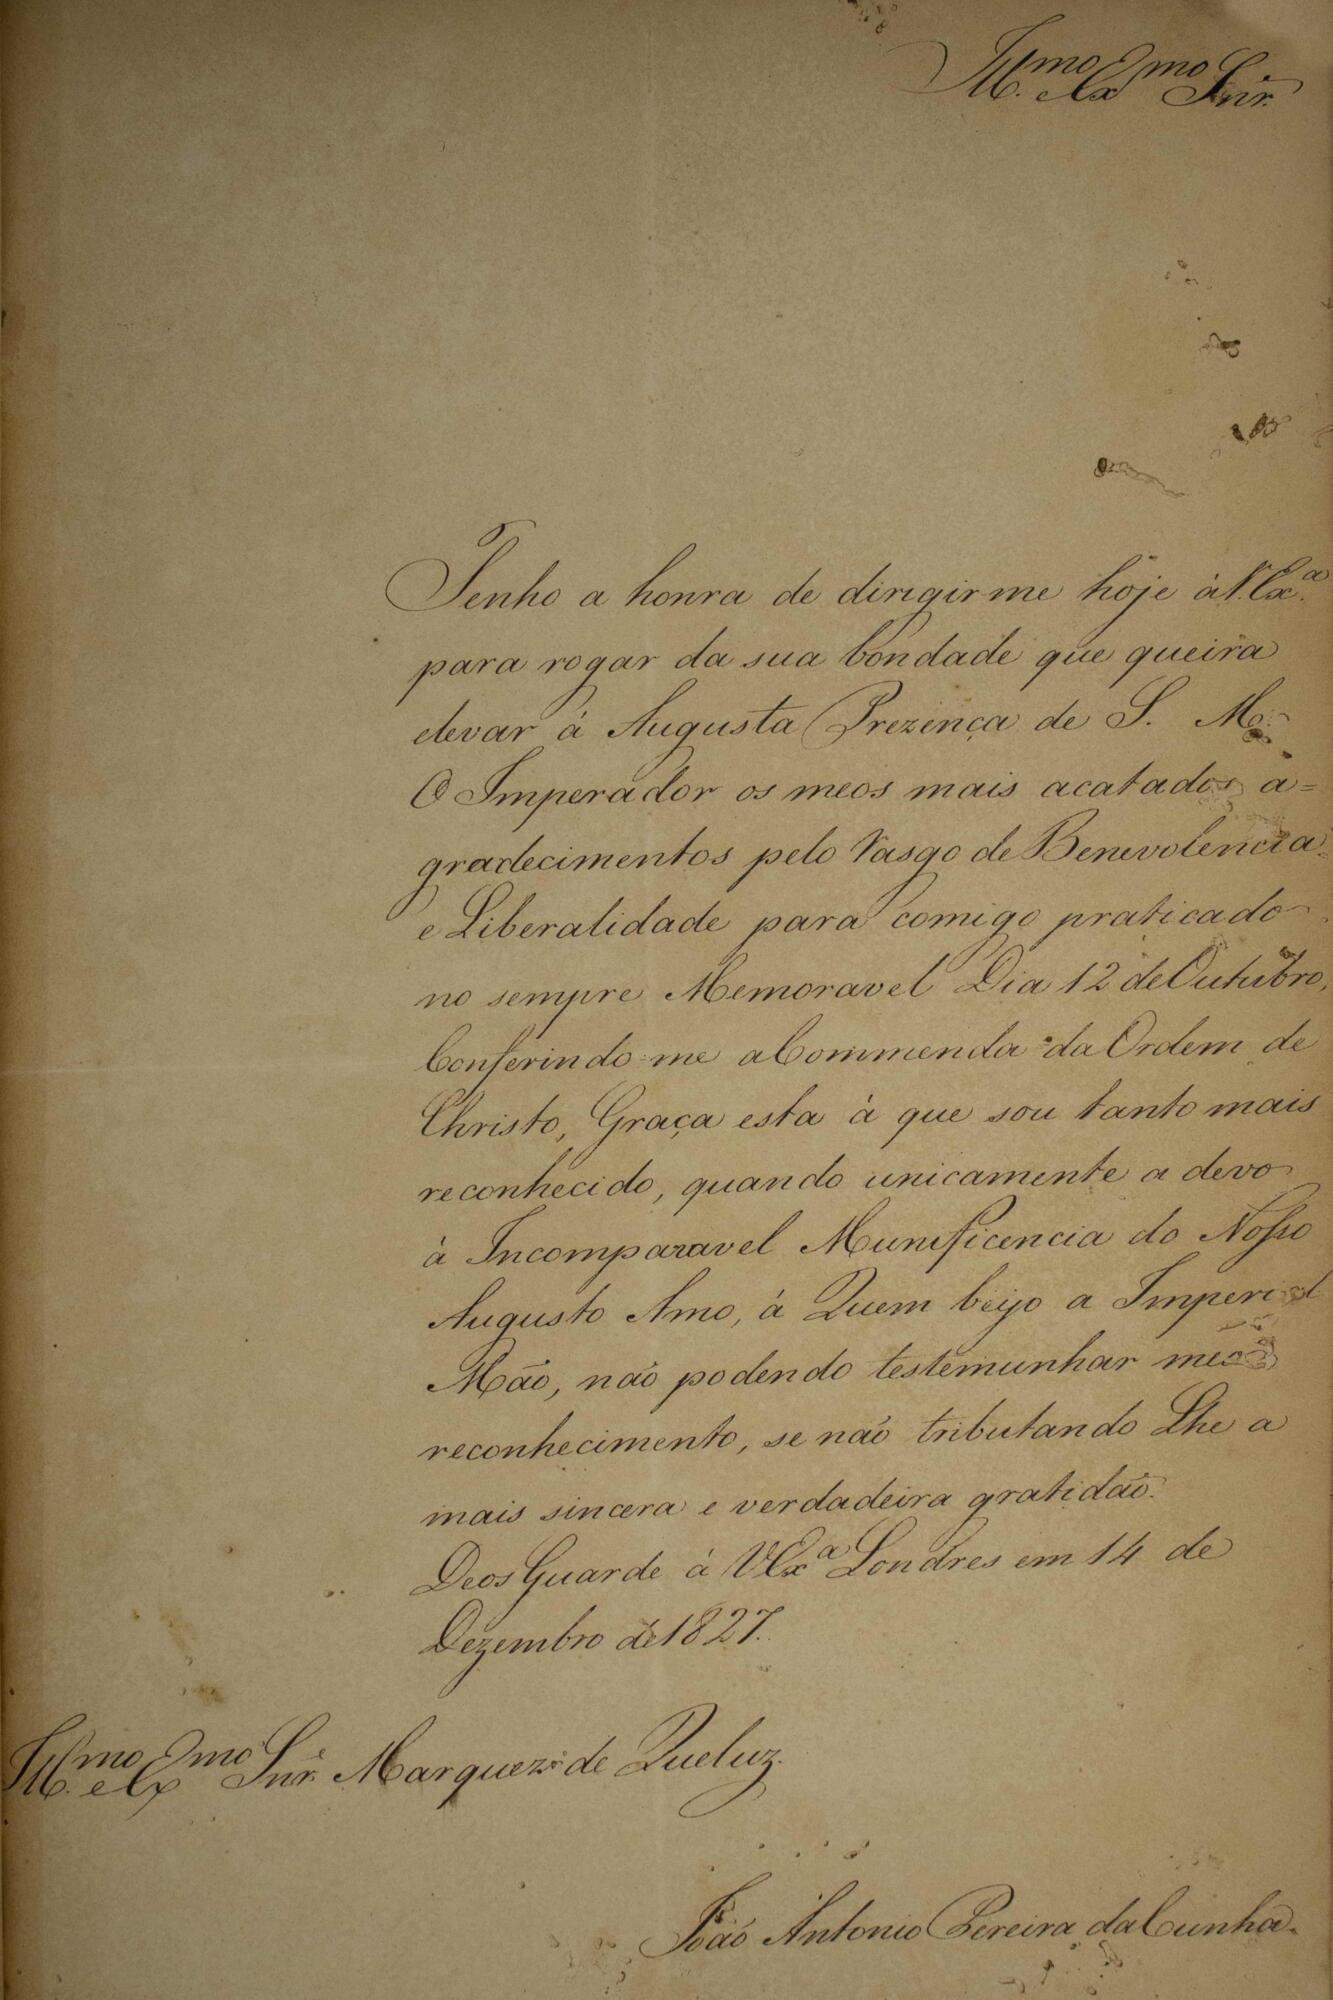 Ill.mo e Ex.mo Snr.
Tenho a honra de dirigir me hoje à V. Ex.a
para rogar da sua bondade que queira
elevar à Augusta Prezença de S. M.
O Imperador os meos mais acatados a=
gradecimentos pelo Rasgo de Benevolencia
e Liberalidade para comigo praticado
no sempre Memoravel Dia 12 de Outubro,
Conferindo-me a Commenda da Ordem de
Christo, Graça esta à que sou tanto mais
reconhecido, quando unicamente a devo
à Incomparavel Munificencia do Nosso
Augusto Amo, à Quem beijo a Imperial
Mão, não podendo testemunhar meo
reconhecimento, se não tributando Lhe a
mais sincera e verdadeira gratidão.
Deos Guarde à V Ex.a Londres em 14 de
Dezembro de 1827.
Ill.mo e Ex.mo Snr. Marquez de Queluz.
João Antonio Pereira da Cunha.